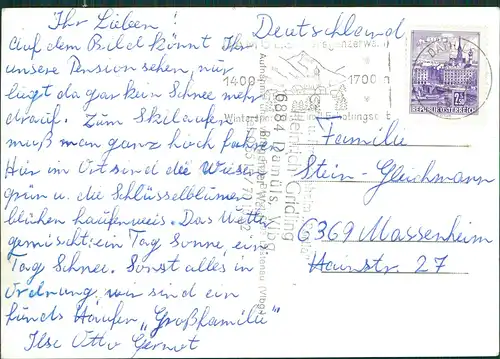 Ihr Lieben!
Auf dem Bild könnt Ihr
unsere Pension sehen, nur
liegt da gar kein Schnee mehr
drauf. Zum Skilaufen
muß man ganz hoch fahren
Hier im Ort sind die Wiesen
grün u. die Schlüsselblumen
blühen haufenweis. Das Wetter
gemischt: ein Tag Sonne, ein
Tag Schnee. Sonst alles in
Ordnung, wir sind ein
Haufen "Großfamilie"
Ilse Otto Gernot
Deutschland
Familie
Stein-Gleichmann
6369 Massenheim
Hainstr. 27
1400
1700m
DAMÜLS
2.50
REPUBLIK ÖSTERREICH
6884 Damüls, Vlbg.